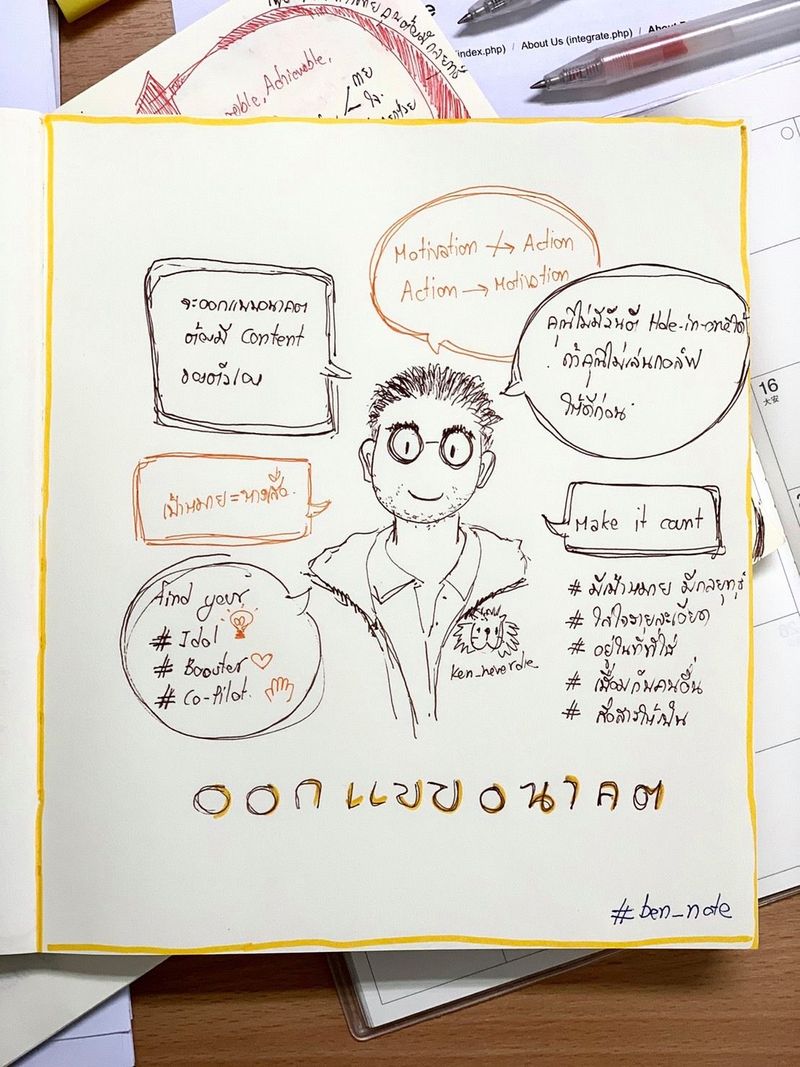 (index.php) / About Us (integrate.php) / About
Achievable,
Motivation ↛ Action
Action → Motivation
จะออกแบบอนาคต
ต้องมี Content
ของตัวเอง
คุณไม่มีวันตี Hole-in-one ได้
ถ้าคุณไม่เล่นกอล์ฟ
ให้ดีก่อน
16
大安
เป้าหมาย = นางเสือ.
Make it count
find your
# Idol
# Booster
# Co-Pilot.
ken_neverdie
# มีเป้าหมาย มีกลยุทธ์
# ใส่ใจรายละเอียด
# อยู่ในที่ที่ใช่
# เชื่อมกับคนอื่น
# สื่อสารให้เป็น
ออกแบบอนาคต
#ben_note